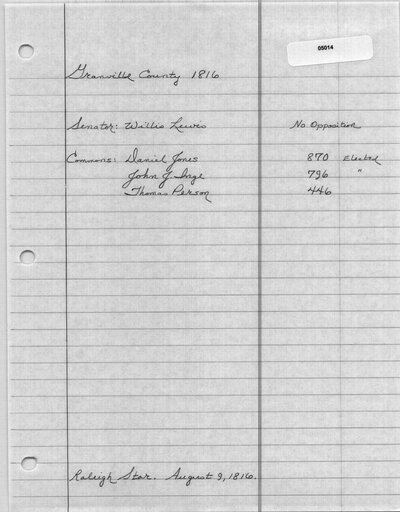 05014
Granville County 1816
Senator: Willis Lewis No Opposition
Commons: Daniel Jones 870 Elected
John J. Inge 796 "
Thomas Person 446
Raleigh Star. August 9, 1816.